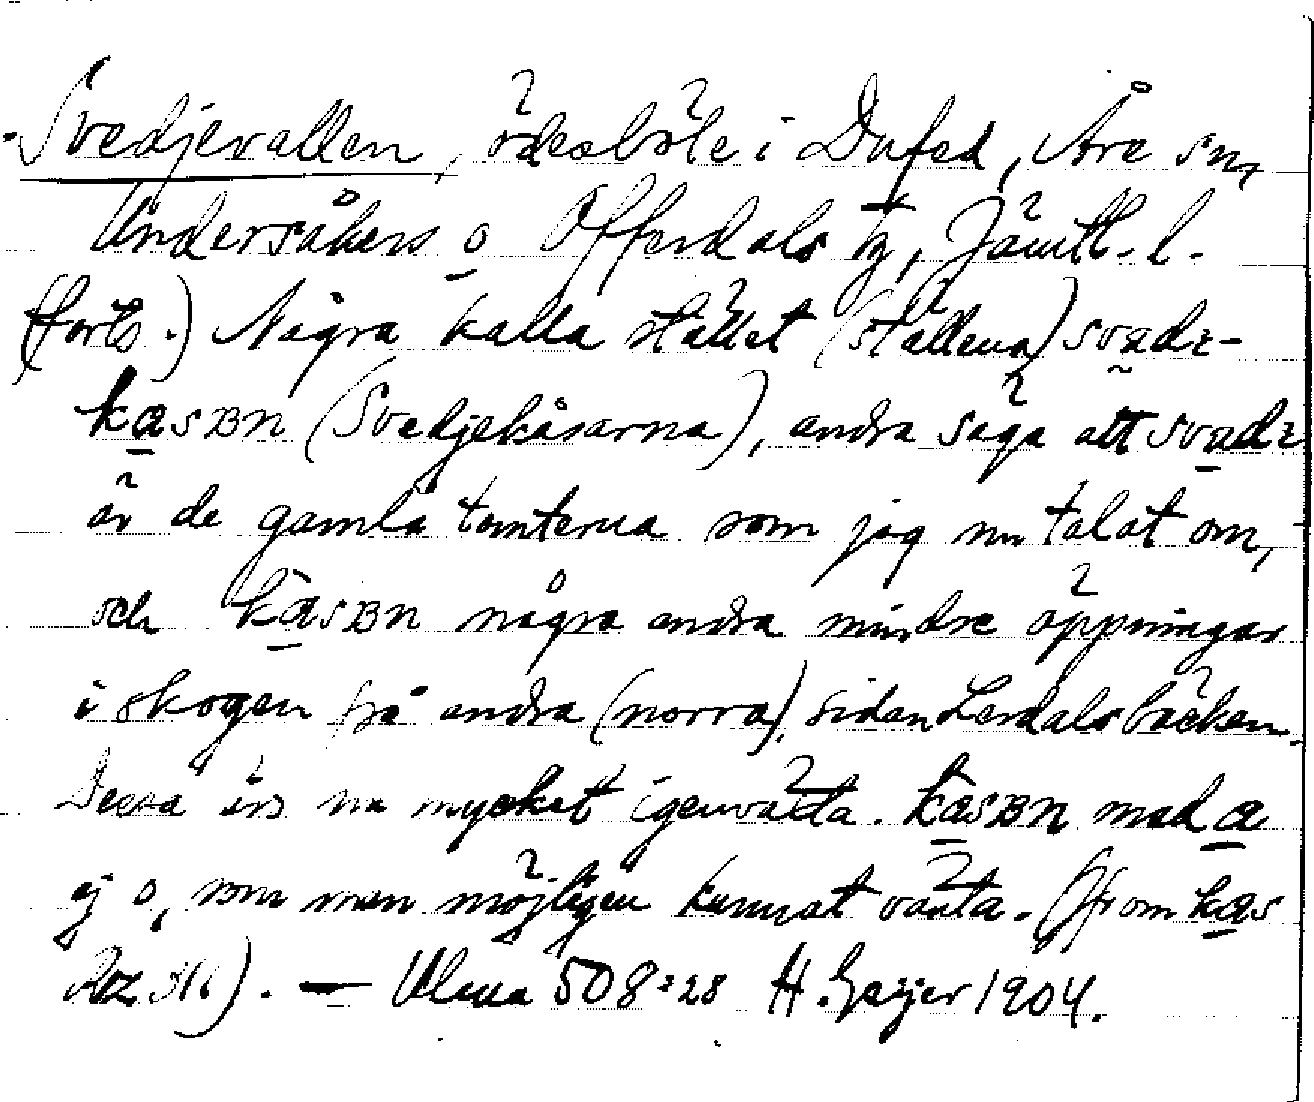 Svedjevallen, ödesböle i Dufed, Åre sn,
Undersåkers o Offerdals tg, Jämtl. l.
(forts.) Några kalla stället (ställena) svadz-
kasBn (Svedjekåsarna), andra säga att svadz
är de gamla tomterna som jag nu talat om,
och kasBn några andra mindre öppningar
i skogen på andra (norra) sidan Lerdalsbäcken.
Dessa äro nu mycket igenväxta. kasBn med a
ej o, som man möjligen kunnat vänta. (Jfr om kas
Roz 316). — Ulma 508:28 H. Geijer 1904.